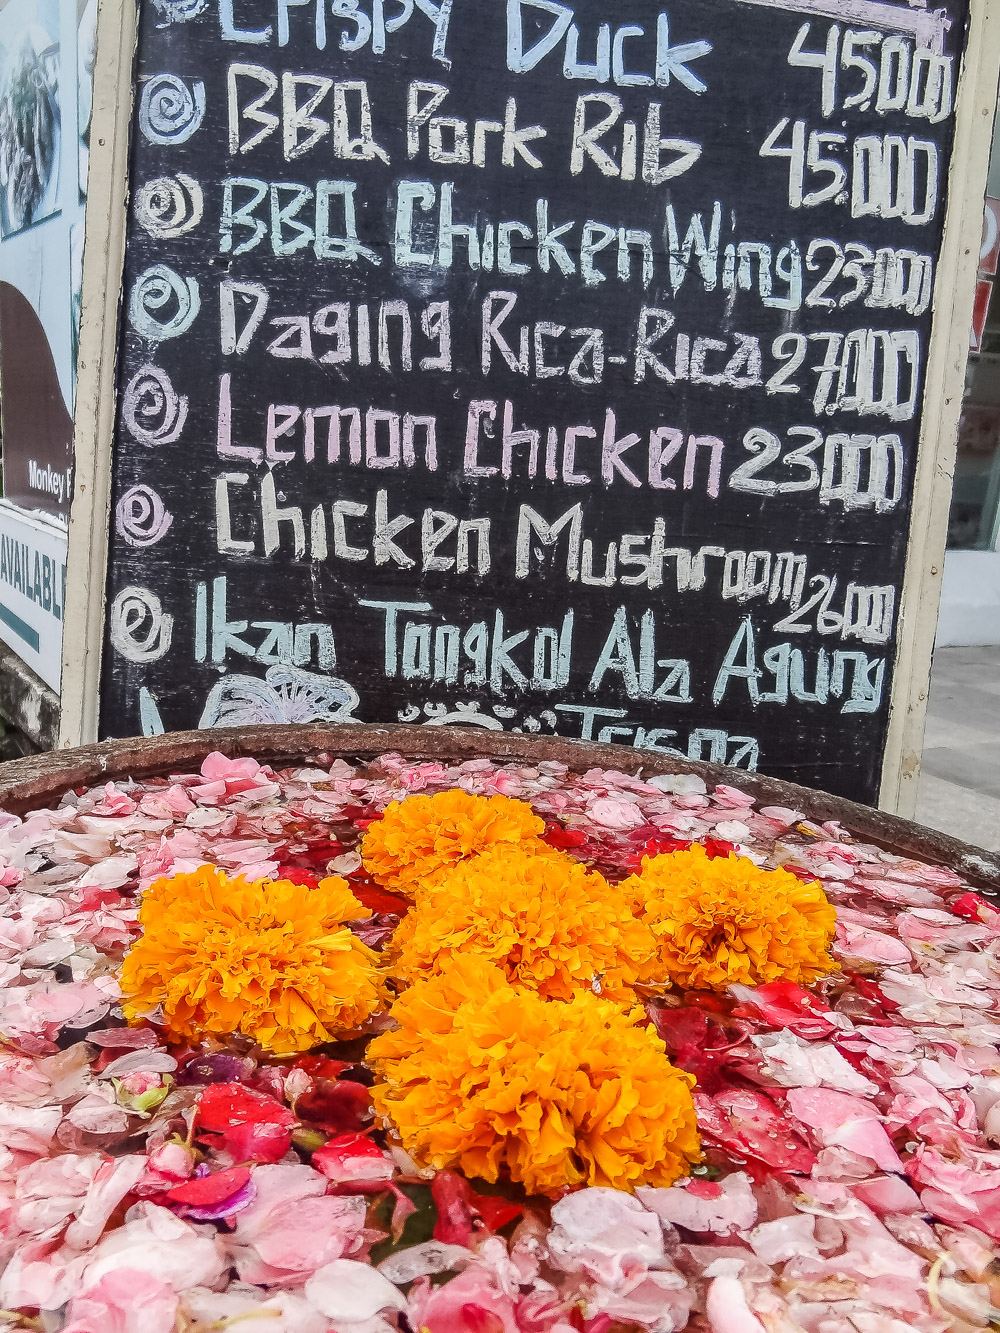 Crispy Duck 45.000
BBQ Pork Rib 45.000
BBQ Chicken Wing 23000
Daging Rica-Rica 27.000
Lemon Chicken 23000
Chicken Mushroom 26000
Ikan Tongkol Ala Agung
Trisna
Monkey
AVAILABLE